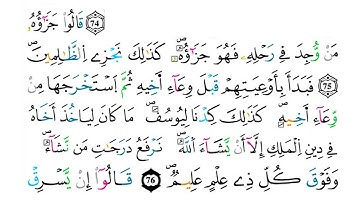 74 قَالُوا۟ جَزَٰٓؤُهُۥ
مَن وُجِدَ فِى رَحْلِهِۦ فَهُوَ جَزَٰٓؤُهُۥ ۚ كَذَٰلِكَ نَجْزِى ٱلظَّٰلِمِينَ
75 فَبَدَأَ بِأَوْعِيَتِهِمْ قَبْلَ وِعَآءِ أَخِيهِ ثُمَّ ٱسْتَخْرَجَهَا مِن
وِعَآءِ أَخِيهِ ۚ كَذَٰلِكَ كِدْنَا لِيُوسُفَ ۖ مَا كَانَ لِيَأْخُذَ أَخَاهُ
فِى دِينِ ٱلْمَلِكِ إِلَّآ أَن يَشَآءَ ٱللَّهُ ۚ نَرْفَعُ دَرَجَٰتٍ مَّن نَّشَآءُ ۗ
وَفَوْقَ كُلِّ ذِى عِلْمٍ عَلِيمٌ 76 قَالُوٓا۟ إِن يَسْرِقْ